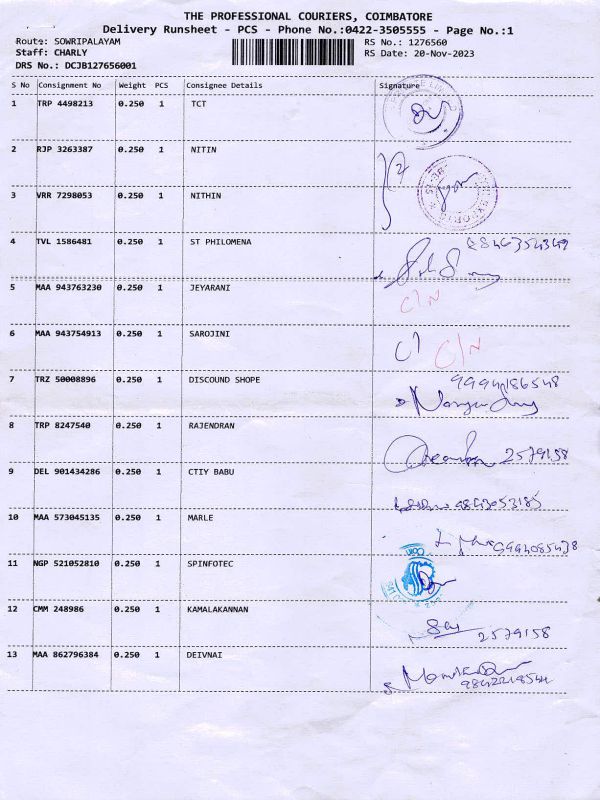 THE PROFESSIONAL COURIERS, COIMBATORE
Delivery Runsheet - PCS - Phone No.:0422-3505555 - Page No.:1
Route: SOWRIPALAYAM RS No.: 1276560
Staff: CHARLY RS Date: 20-Nov-2023
DRS No.: DCJB127656001
S No Consignment No Weight PCS Consignee Details Signature
1 TRP 4498213 0.250 1 TCT
2 RJP 3263387 0.250 1 NITIN
3 VRR 7298053 0.250 1 NITHIN
4 TVL 1586481 0.250 1 ST PHILOMENA
5 MAA 943763230 0.250 1 JEYARANI
C/N
6 MAA 943754913 0.250 1 SAROJINI
C/N
7 TRZ 50008896 0.250 1 DISCOUND SHOPE 9994186548
8 TRP 8247540 0.250 1 RAJENDRAN 2579158
9 DEL 901434286 0.250 1 CTIY BABU 9843053185
10 MAA 573045135 0.250 1 MARLE 9994085438
11 NGP 521052810 0.250 1 SPINFOTEC
12 CMM 248986 0.250 1 KAMALAKANNAN 2579158
13 MAA 862796384 0.250 1 DEIVNAI